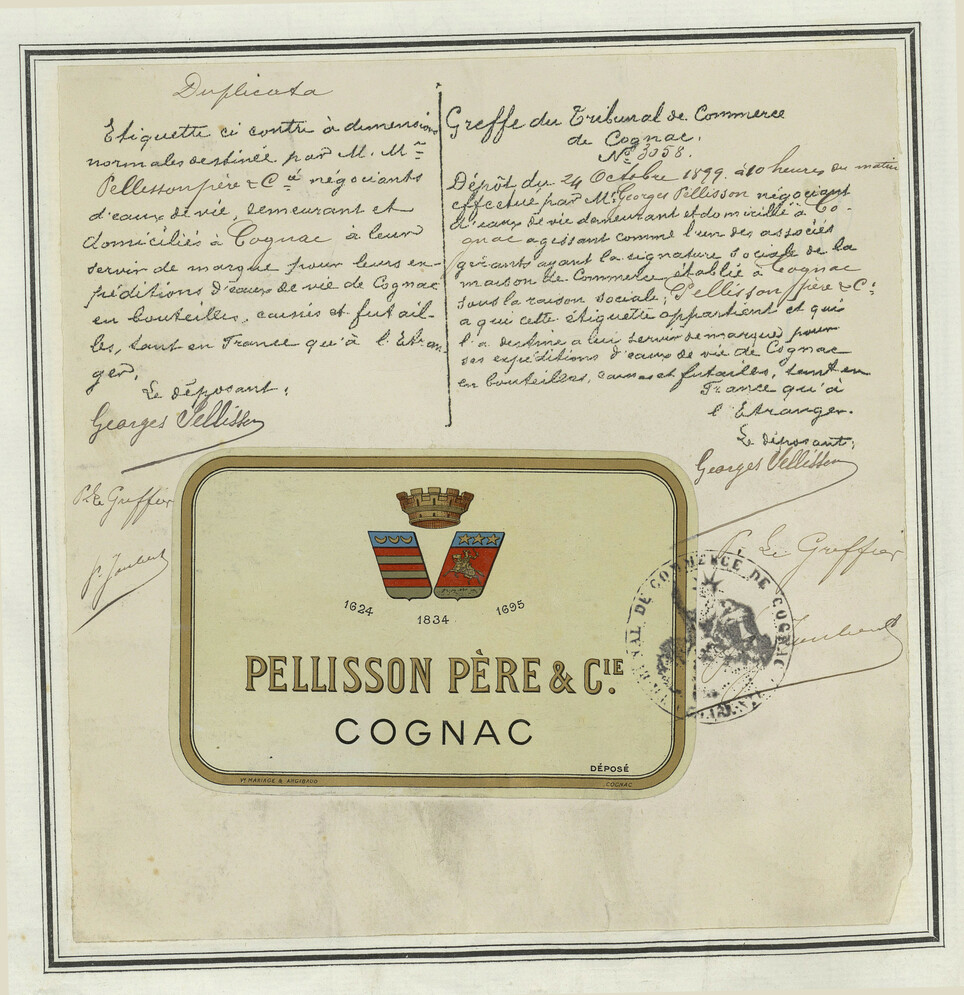 Duplicata
Etiquette ci contre à dimensions
normales destinée par M. M.rs
Pellisson père & Cie négociants
d'eaux de vie, demeurant et
domiciliés à Cognac à leur
servir de marque pour leurs ex-
péditions d'eaux de vie de Cognac
en bouteilles, caisses et futail-
les, tant en France qu'à l'Etran-
ger.
Le déposant:
Georges Pellisson
Pr Le Greffier
Greffe du Tribunal de Commerce
de Cognac.
No 3058.
Dépôt du 24 Octobre 1899 à 10 heures du matin
effectué par Mr Georges Pellisson négociant
d'eaux de vie demeurant et domicilié à Co-
gnac agissant comme l'un des associés
gérants ayant la signature sociale de la
maison de Commerce établie à Cognac
sous la raison sociale; Pellisson père & Cie
a qui cette étiquette appartient et qui
l'a destine a leur servir de marque pour
ses expéditions d'eaux de vie de Cognac
en bouteilles, caisses et futailles, tant en
France qu'à
l'Etranger.
Le déposant:
Georges Pellisson
P. Le Greffier
1624
1834
1695
PELLISSON PÈRE & CIE.
COGNAC
DÉPOSÉ
Vve MARIAGE & ARGIBAUD
COGNAC
TRIBUNAL DE COMMERCE DE COGNAC